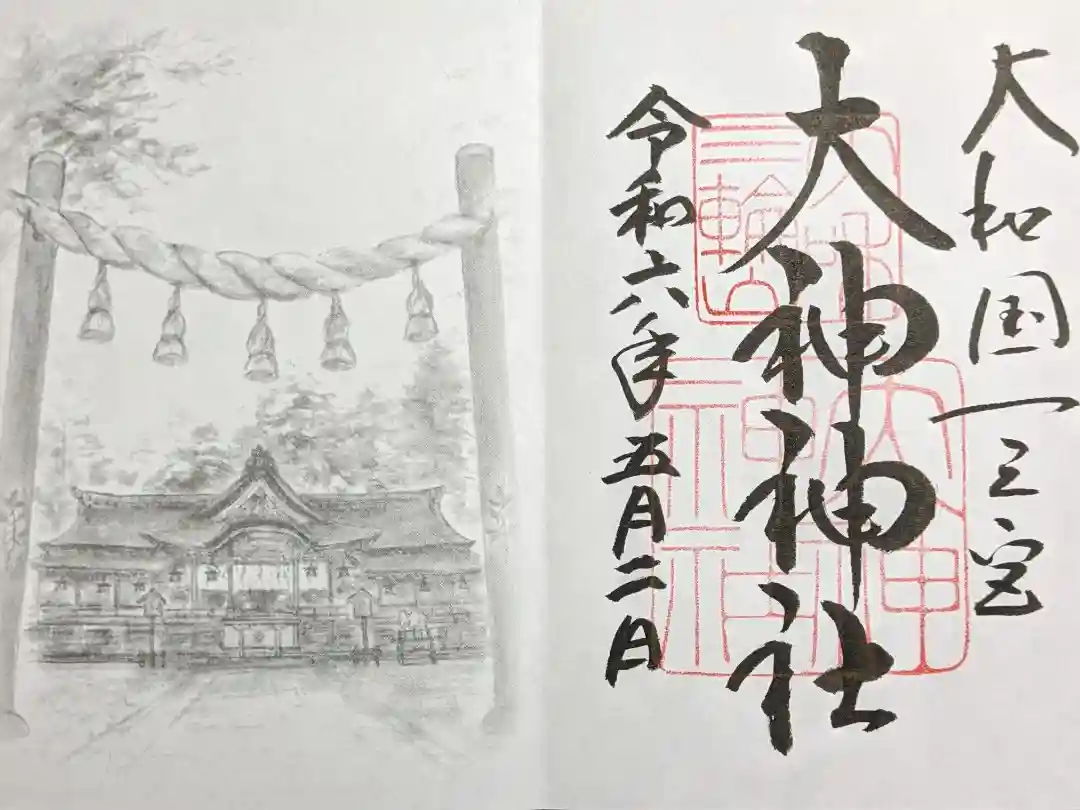 大和国一之宮
大神神社
令和六年五月二日
三輪山
大神
神社